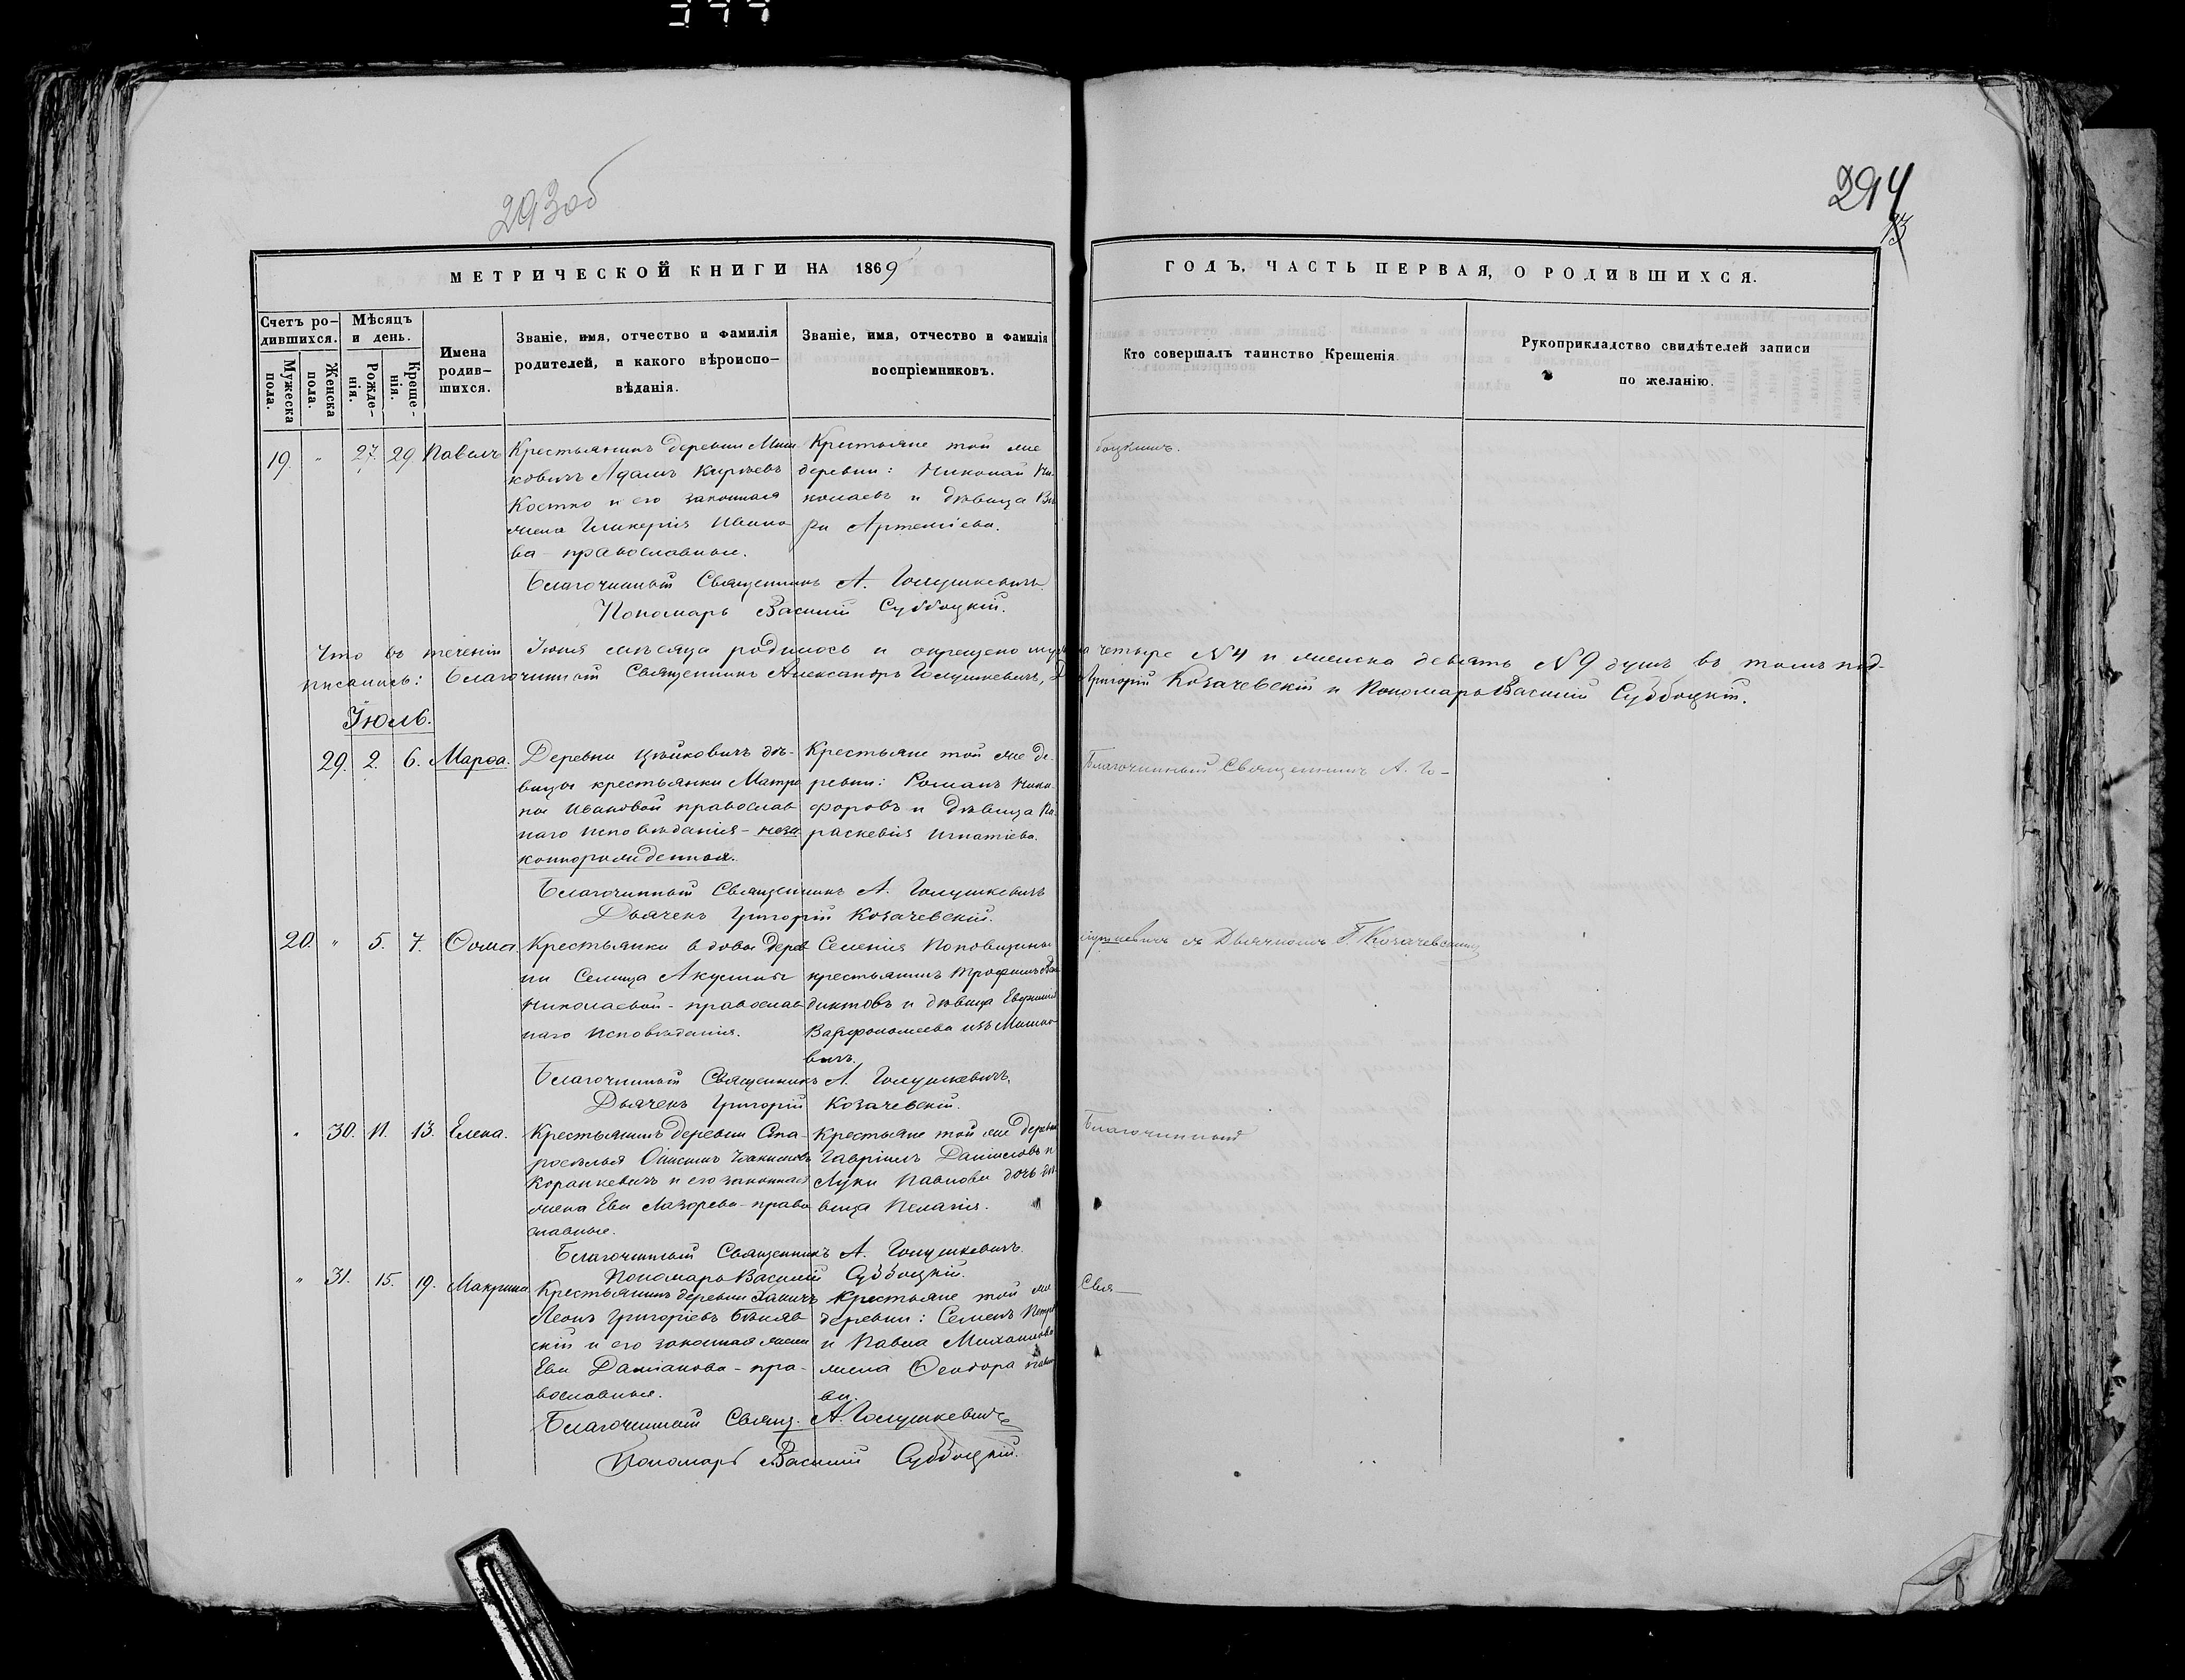 293об
294
МЕТРИЧЕСКОЙ КНИГИ НА 1869
ГОДЪ, ЧАСТЬ ПЕРВАЯ, О РОДИВШИХСЯ.
Счетъ ро-
дившихся.
Мужеска
пола.
Женска
пола.
Мѣсяцъ
и день.
Рожде-
нія.
Креще-
нія.
Имена
родив-
шихся.
Званіе, имя, отчество и фамилія
родителей, и какого вѣроиспо-
вѣданія.
Званіе, имя, отчество и фамилія
воспріемниковъ.
Кто совершалъ таинство Крещенія
Рукоприкладство свидѣтелей записи
по желанію.
19. " 27. 29. Павелъ
Крестьянинъ деревни Миш
ковичъ Адамъ
Костко и его законная
жена Гликерія Ивано
ва - православные.
Крестьяне той же
деревни: Николай Ни-
колаевъ и дѣвица Вѣ
ра Артеміева.
боцкимъ.
Благочинный Священникъ А. Голушкевичъ
Пономарь Василій Суббоцкій.
Что въ теченіи Іюня мѣсяца родилось и окрещено четыре №4 и женска девять №9 душъ въ томъ под-
писались: Благочинный Священникъ Александръ Голушкевичъ, Григорій Козачевскій и Пономарь Василій Суббоцкій.
Іюль.
29. 2. 6. Марѳа.
Деревни Цѣйковичъ дѣ-
вицы крестьянки Матро
ны Ивановой православ
наго исповѣданія - неза
коннорожденная.
Крестьяне той же де-
ревни: Романъ Ники
форовъ и дѣвица Па
раскевія Игнатіева.
Благочинный Священникъ А. Го-
Благочинный Священникъ А. Голушкевичъ
Дьячекъ Григорій Козачевскій.
20. " 5. 7. Ѳома.
Крестьянки вдовы дерев
ни Селища Акулины
Николаевой - православ
наго исповѣданія.
Селенія Поповщины
крестьянинъ Трофимъ
диктовъ и дѣвица Евфимія
Варфоломеева изъ Мишко-
вичъ.
лушкевичъ съ Дьячкомъ Г. Козачевскимъ
Благочинный Священникъ А. Голушкевичъ.
Дьячекъ Григорій Козачевскій.
" 30. 11. 13. Елена.
Крестьянинъ деревни Ста-
роселья
и его законная
жена Ева Лазорева - право
славные.
Крестьяне той же деревни
Гавріилъ Даниловъ и
Луки Павлова дочь дѣ-
вица Пелагія.
Благочинный
Благочинный Священникъ А. Голушкевичъ.
Пономарь Василій Суббоцкій.
" 31. 15. 19. Макрина
Крестьянинъ деревни
Леонъ Григоріевъ Бѣляв
скій и его законная жена
Ева Даміанова - пра-
вославные.
Крестьяне той же
деревни: Семенъ Петровъ
и Павла Михайлова
жена Ѳеодора
ва.
Свя-
Благочинный Свящ. А. Голушкевичъ
Пономарь Василій Суббоцкій.